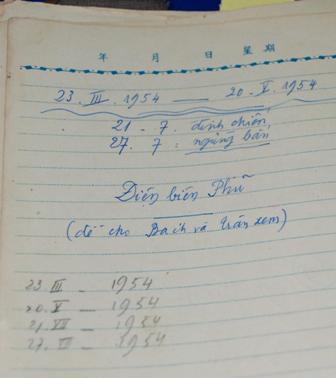 年 月 日 星期
23. III. 1954 — 20. V. 1954
21 - 7. đình chiến,
27. 7: ngừng bắn
Điện biên Phủ
(để cho Bạch và Trân xem)
23 III - 1954
20. V - 1954
21 VII - 1954
27. VII - 1954